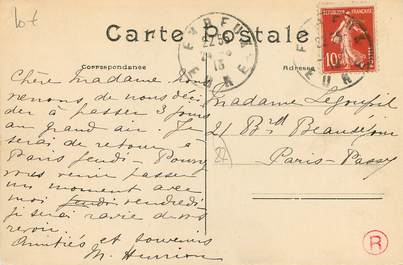 lot
Carte Postale
Correspondance
Adresse
EVREUX
EURE
10
Chère Madame nous
venons de nous déci
der à passer 3 jours
au grand air. Je
serai de retour à
Paris jeudi. Pouvez
vous venir passer
un moment avec
moi jeudi vendredi
je serai ravie de vous
revoir.
Amitiés et souvenirs
M. Henrion
Madame Legoupil
21 Bd Beauséjour
Paris-Passy
R